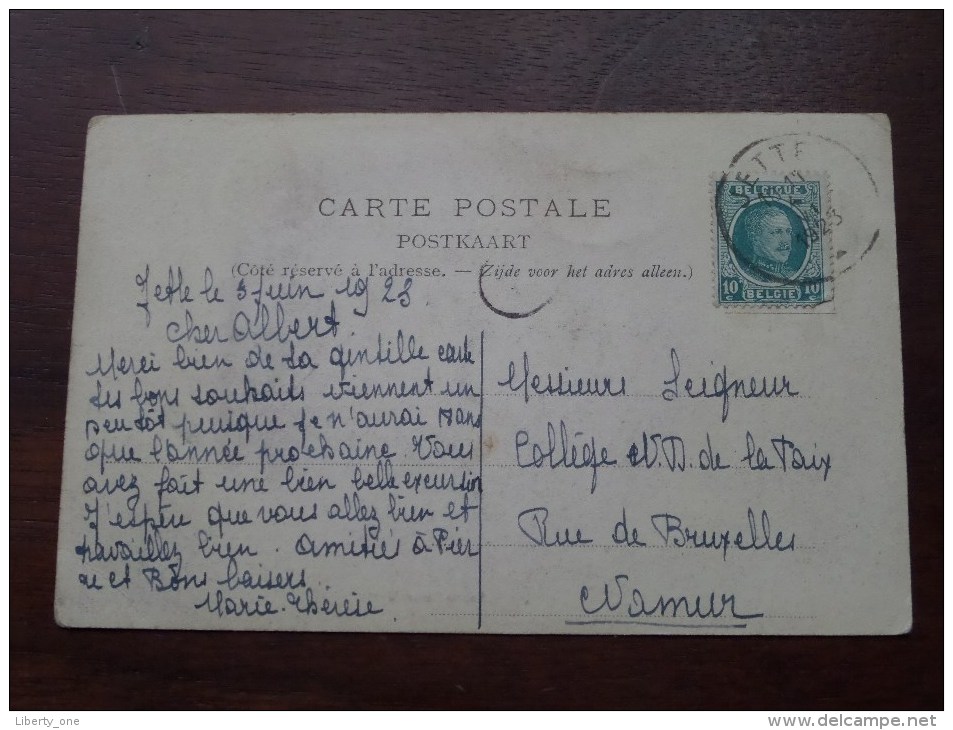 CARTE POSTALE
POSTKAART
(Côté réservé à l'adresse. — Zijde voor het adres alleen.)
BELGIQUE
10c BELGIË 10c
JETTE
1923
Jette le 3 Juin 1923.
Cher Albert.
Merci bien de ta gentille carte
tes bons souhaits viennent un
peu tôt puisque je n'aurai 17 ans
que l'année prochaine. Vous
avez fait une bien belle excursion
J'espèu que vous allez bien et
travaillez bien. Amitiés à Pier
re et Bons baisers.
Marie-Thérèse
Messieurs Seigneur
Collége N.D. de la Paix
Rue de Bruxelles
Namur
Liberty_one
delcampe.net